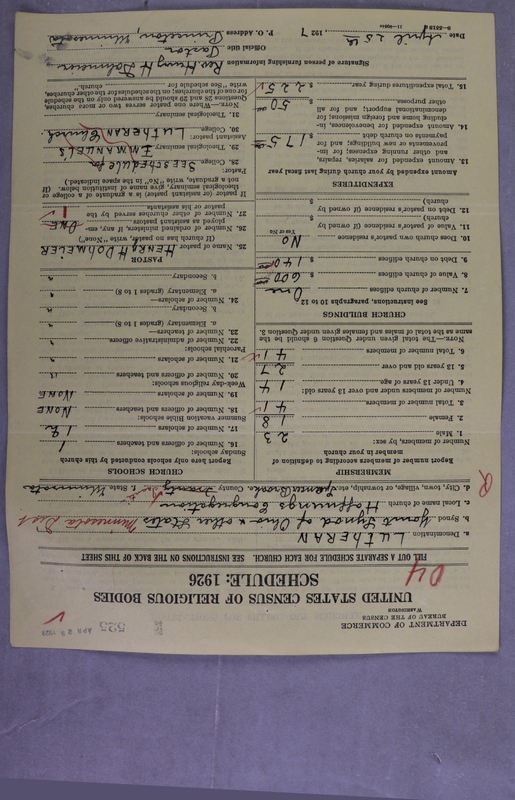 DEPARTMENT OF COMMERCE
BUREAU OF THE CENSUS
WASHINGTON
525
UNITED STATES CENSUS OF RELIGIOUS BODIES
SCHEDULE: 1926
FILL OUT A SEPARATE SCHEDULE FOR EACH CHURCH. SEE INSTRUCTIONS ON THE BACK OF THIS SHEET
a. Denomination LUTHERAN
b. Synod Joint Synod of Ohio & other States Minnesota Dist
c. Local name of church Hoffnungs Congregation
d. City, town, village, or township, etc. Spencer Brook County State Minnesota
MEMBERSHIP
Report number of members according to definition of member in your church
Number of members, by sex:
1. Male 23
2. Female 18
3. Total number of members 41
Number of members under and over 13 years old:
4. Under 13 years of age 14
5. 13 years old and over 27
6. Total number of members 41
NOTE.—The total given under Question 6 should be the same as the total of males and females given under Question 3.
CHURCH BUILDINGS
See instructions, paragraphs 10 to 12
7. Number of church edifices One
8. Value of church edifices $ 600
9. Debt on church edifices $ 140
10. Does church own pastor's residence No
Yes or No
11. Value of pastor's residence (if owned by church) $
12. Debt on pastor's residence (if owned by church) $
EXPENDITURES
Amount expended by your church during last fiscal year
13. Amount expended for salaries, repairs, and other running expenses; for improvements or new building; and for payments on church debt $ 175
14. Amount expended for benevolences, including home and foreign missions; for denominational support; and for all other purpose $ 50
15. Total expenditures during year $ 225
CHURCH SCHOOLS
Report here only schools conducted by this church
Sunday schools:
16. Number of officers and teachers 1
17. Number of scholars 18
Summer vacation Bible schools:
18. Number of officers and teachers NONE
19. Number of scholars NONE
Week-day religious schools:
20. Number of officers and teachers
21. Number of scholars
Parochial schools:
22. Number of administrative officers
23. Number of teachers—
a. Elementary (grades 1 to 8)
b. Secondary
24. Number of scholars—
a. Elementary (grades 1 to 8)
b. Secondary
PASTOR
25. Name of pastor HENRY H DOHMEIER
(If church has no pastor, write "None")
26. Number of ordained ministers, if any, employed as assistant pastors
27. Number of other churches served by the pastor or his assistants ONE 1
If pastor (or assistant pastor) is a graduate of a college or theological seminary, give name of institution below. (If not a graduate, write "No" in the space indicated.)
Pastor:
28. College SEE SCHEDULE for
29. Theological seminary IMMANUEL'S
Assistant pastor:
30. College LUTHERAN Church
31. Theological seminary
NOTE.—Where one pastor serves two or more churches, Questions 28 and 29 should be answered only on the schedule for one of the churches; on the schedules for the other churches, write "See schedule for church."
Signature of person furnishing information Rev. Henry H Dohmeier
Official title Pastor
P. O. Address Princeton, Minnesota
Date April 25th 1927